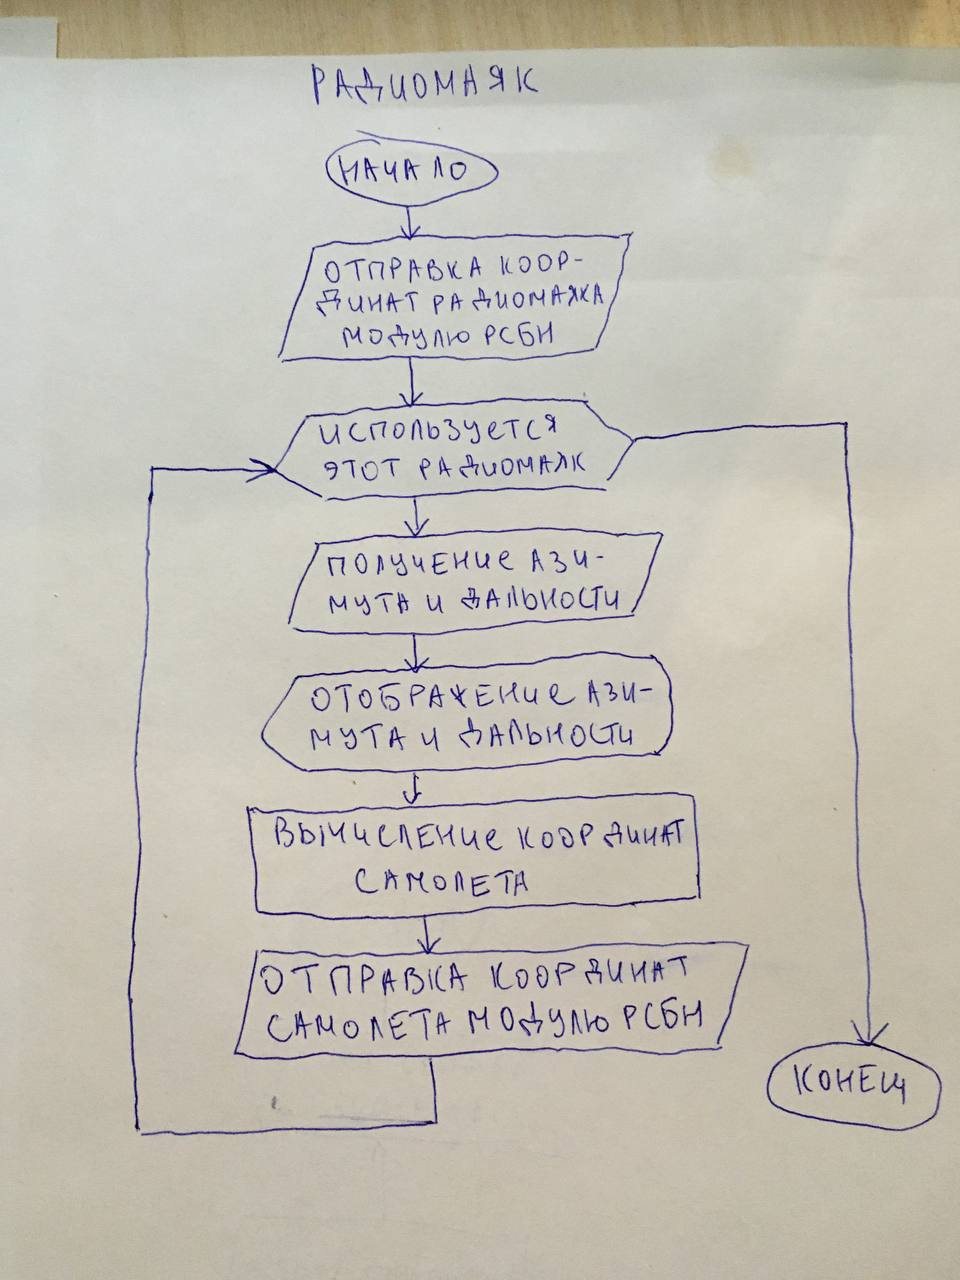 РАДИОМАЯК
НАЧАЛО
ОТПРАВКА КООР-
ДИНАТ РАДИОМАЯКА
МОДУЛЮ РСБН
ИСПОЛЬЗУЕТСЯ
ЭТОТ РАДИОМАЯК
ПОЛУЧЕНИЕ АЗИ-
МУТА И ДАЛЬНОСТИ
ОТОБРАЖЕНИЕ АЗИ-
МУТА И ДАЛЬНОСТИ
ВЫЧИСЛЕНИЕ КООРДИНАТ
САМОЛЕТА
ОТПРАВКА КООРДИНАТ
САМОЛЕТА МОДУЛЮ РСБН
КОНЕЦ